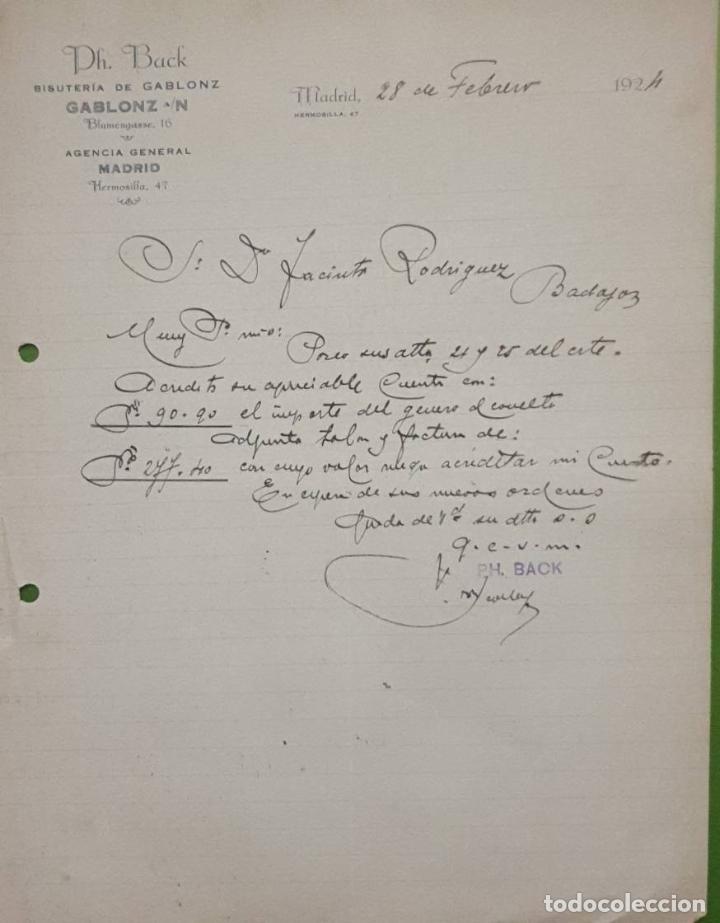 Ph. Back
BISUTERÍA DE GABLONZ
GABLONZ a/N
Blumengasse, 16
AGENCIA GENERAL
MADRID
Hermosilla, 47
Madrid, 28 de Febrero 1924
HERMOSILLA, 47
Sr. Dn Jacinto Rodriguez
Badajoz
Muy Sr. mio:
Poseo sus atta 21 y 25 del cte.
Acredito su apreciable Cuenta con:
Pts 90.90 el importe del genero devuelto
Adjunto talon y factura de:
Pts 277.40 con cuyo valor ruego acreditar mi Cuenta.
En espera de sus nuevas ordenes
queda de Vd. su atto s. s
q. e. v. m.
PH. BACK
todocoleccion